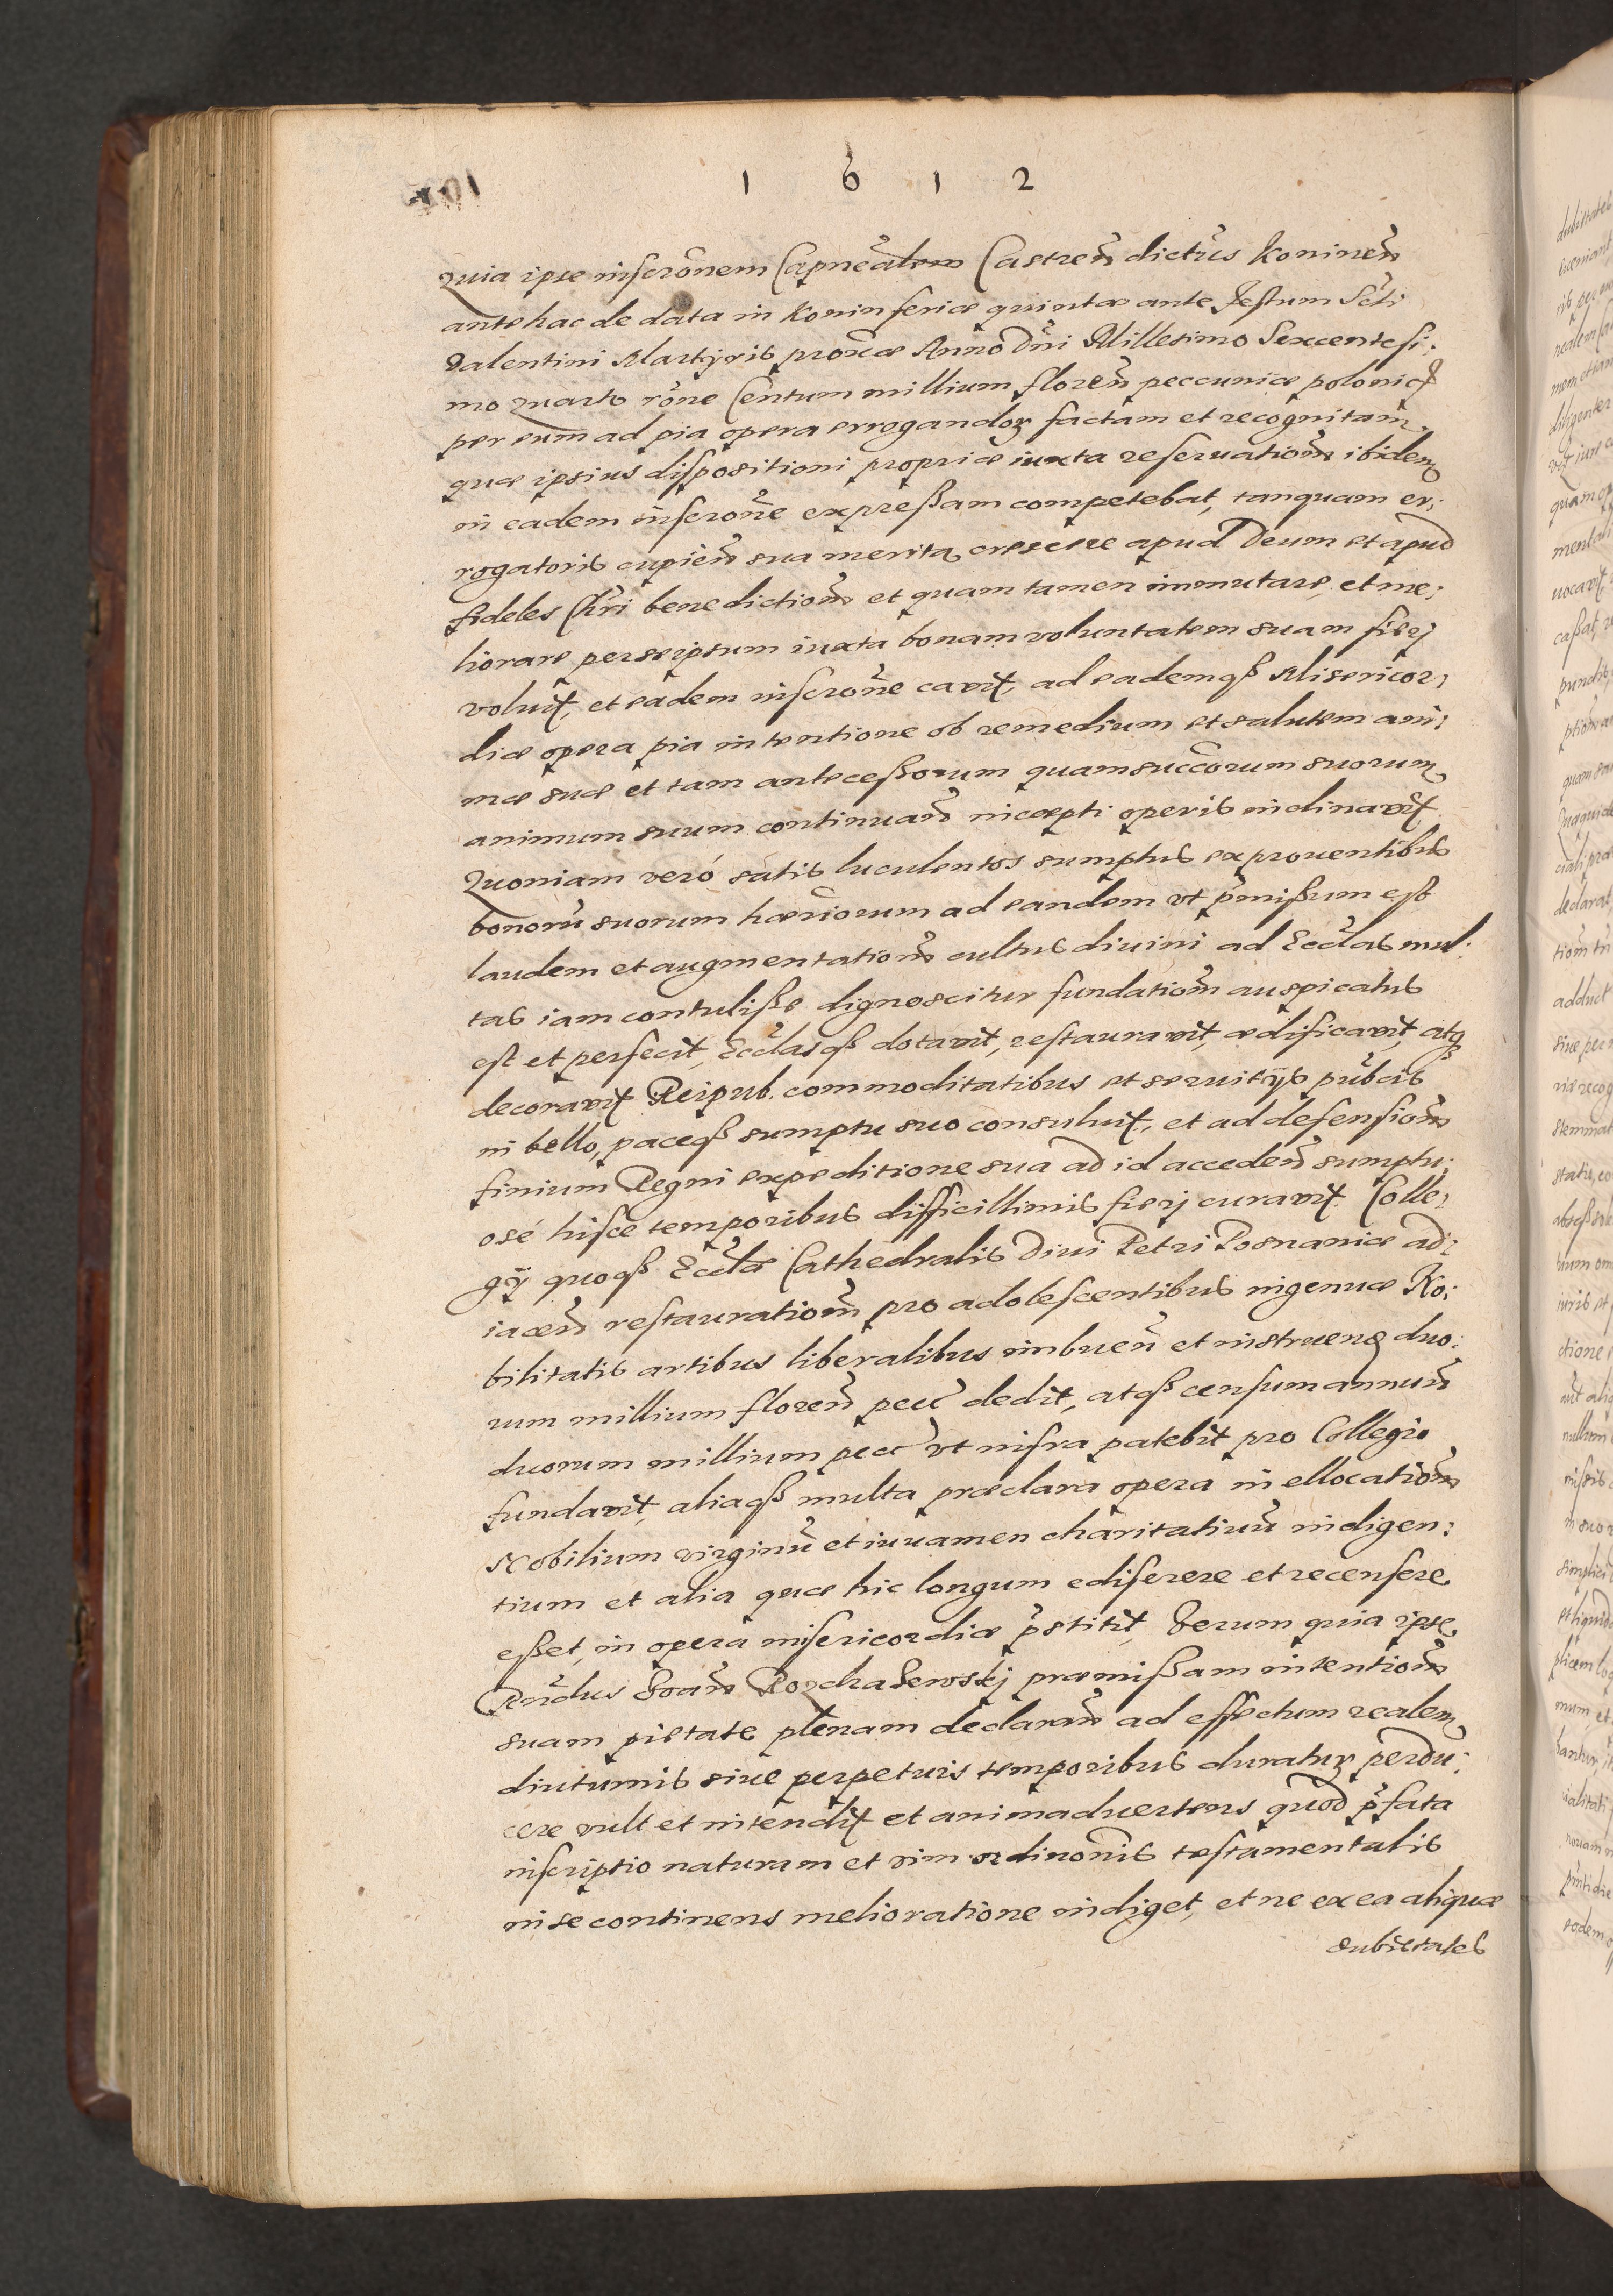 1 6 1 2
Quia ipse inscrõnem Capneãlem Castreñ dictus Konineñ
antehac de data in Konin feriæ quintæ ante Festum Scti
Valentini Martÿris proxæ Anno Dñi Millesimo Sexcentesi:
mo Quarto rõne Centum millium floreñ peccuniæ polonicę
per eum ad pia opera errogandoꝝ factam et recognitam
quæ ipsius dispositioni propriæ iuxta reseruationem ibidem
in eadem inscrõne expreßam competebat, tanquam er:
rogatoris cupieñ sua merita crescere apud Deum et apud
fideles Chri benedictionem et quam tamen immutare, et me:
liorare perseipsum iuxta bonam voluntatem suam fierj
voluit, et eadem inscrõne cavit, ad eademqȝ Misericor:
diæ opera pia intentione ob remedium et salutem ani:
mæ suæ et tam anteceßorum quam succõrum suorum
animum suum continuañ incæpti operis inclinavit
Quoniam veró satis luculentos sumptus ex prouentibus
bonorũ suorum hæriorum ad eandem vt p̃mißum est
laudem et augmentationem cultus diuini ad Eccłas mul:
tas iam contuliße dignoscitur fundationem auspicatus
est et perfecit, Eccłasqȝ dotavit, restauravit, ædificavit, atqȝ
decoravit Reipub. commoditatibus et seruitijs pubcis
in bello, paceqȝ sumptu suo consuluit, et ad defensionem
finium Regni expeditione sua ad id accedeñ sumptu:
osé hisce temporibus difficillimis fierj curavit Colle:
gÿ quoqȝ Eccłæ Cathedralis Diui Petri Posnaniæ ad:
iaceñ restaurationem pro adolescentibus ingenuæ No:
bilitatis artibus liberalibus imbueñ et instrueñ duo:
rum millium floreñ pecč dedit, atqȝ censum annuũ
duorum millium pecč vt infra patebit pro Collegio
fundavit, aliaqȝ multa præclara opera in ellocationem
Nobilium virginũ et iuuamen charitatiuũ indigen:
tium et alia quæ hic longum ediserere et recensere
eßet, in opera misericordiæ p̃stitit, Verum quia ipse
Rñdus Joañ Rozdraẑewskj præmißam intentionem
suam pietate plenam declarañ ad effectum realem
diuturnis siue perpetuis temporibus duraturꝝ perdu:
cere vult et intendit et animaduertens quod p̃fata
inscriptio naturam et vim ordinõnis testamentalis
in se continens melioratione indiget, et ne ex ea aliquæ
dubietates